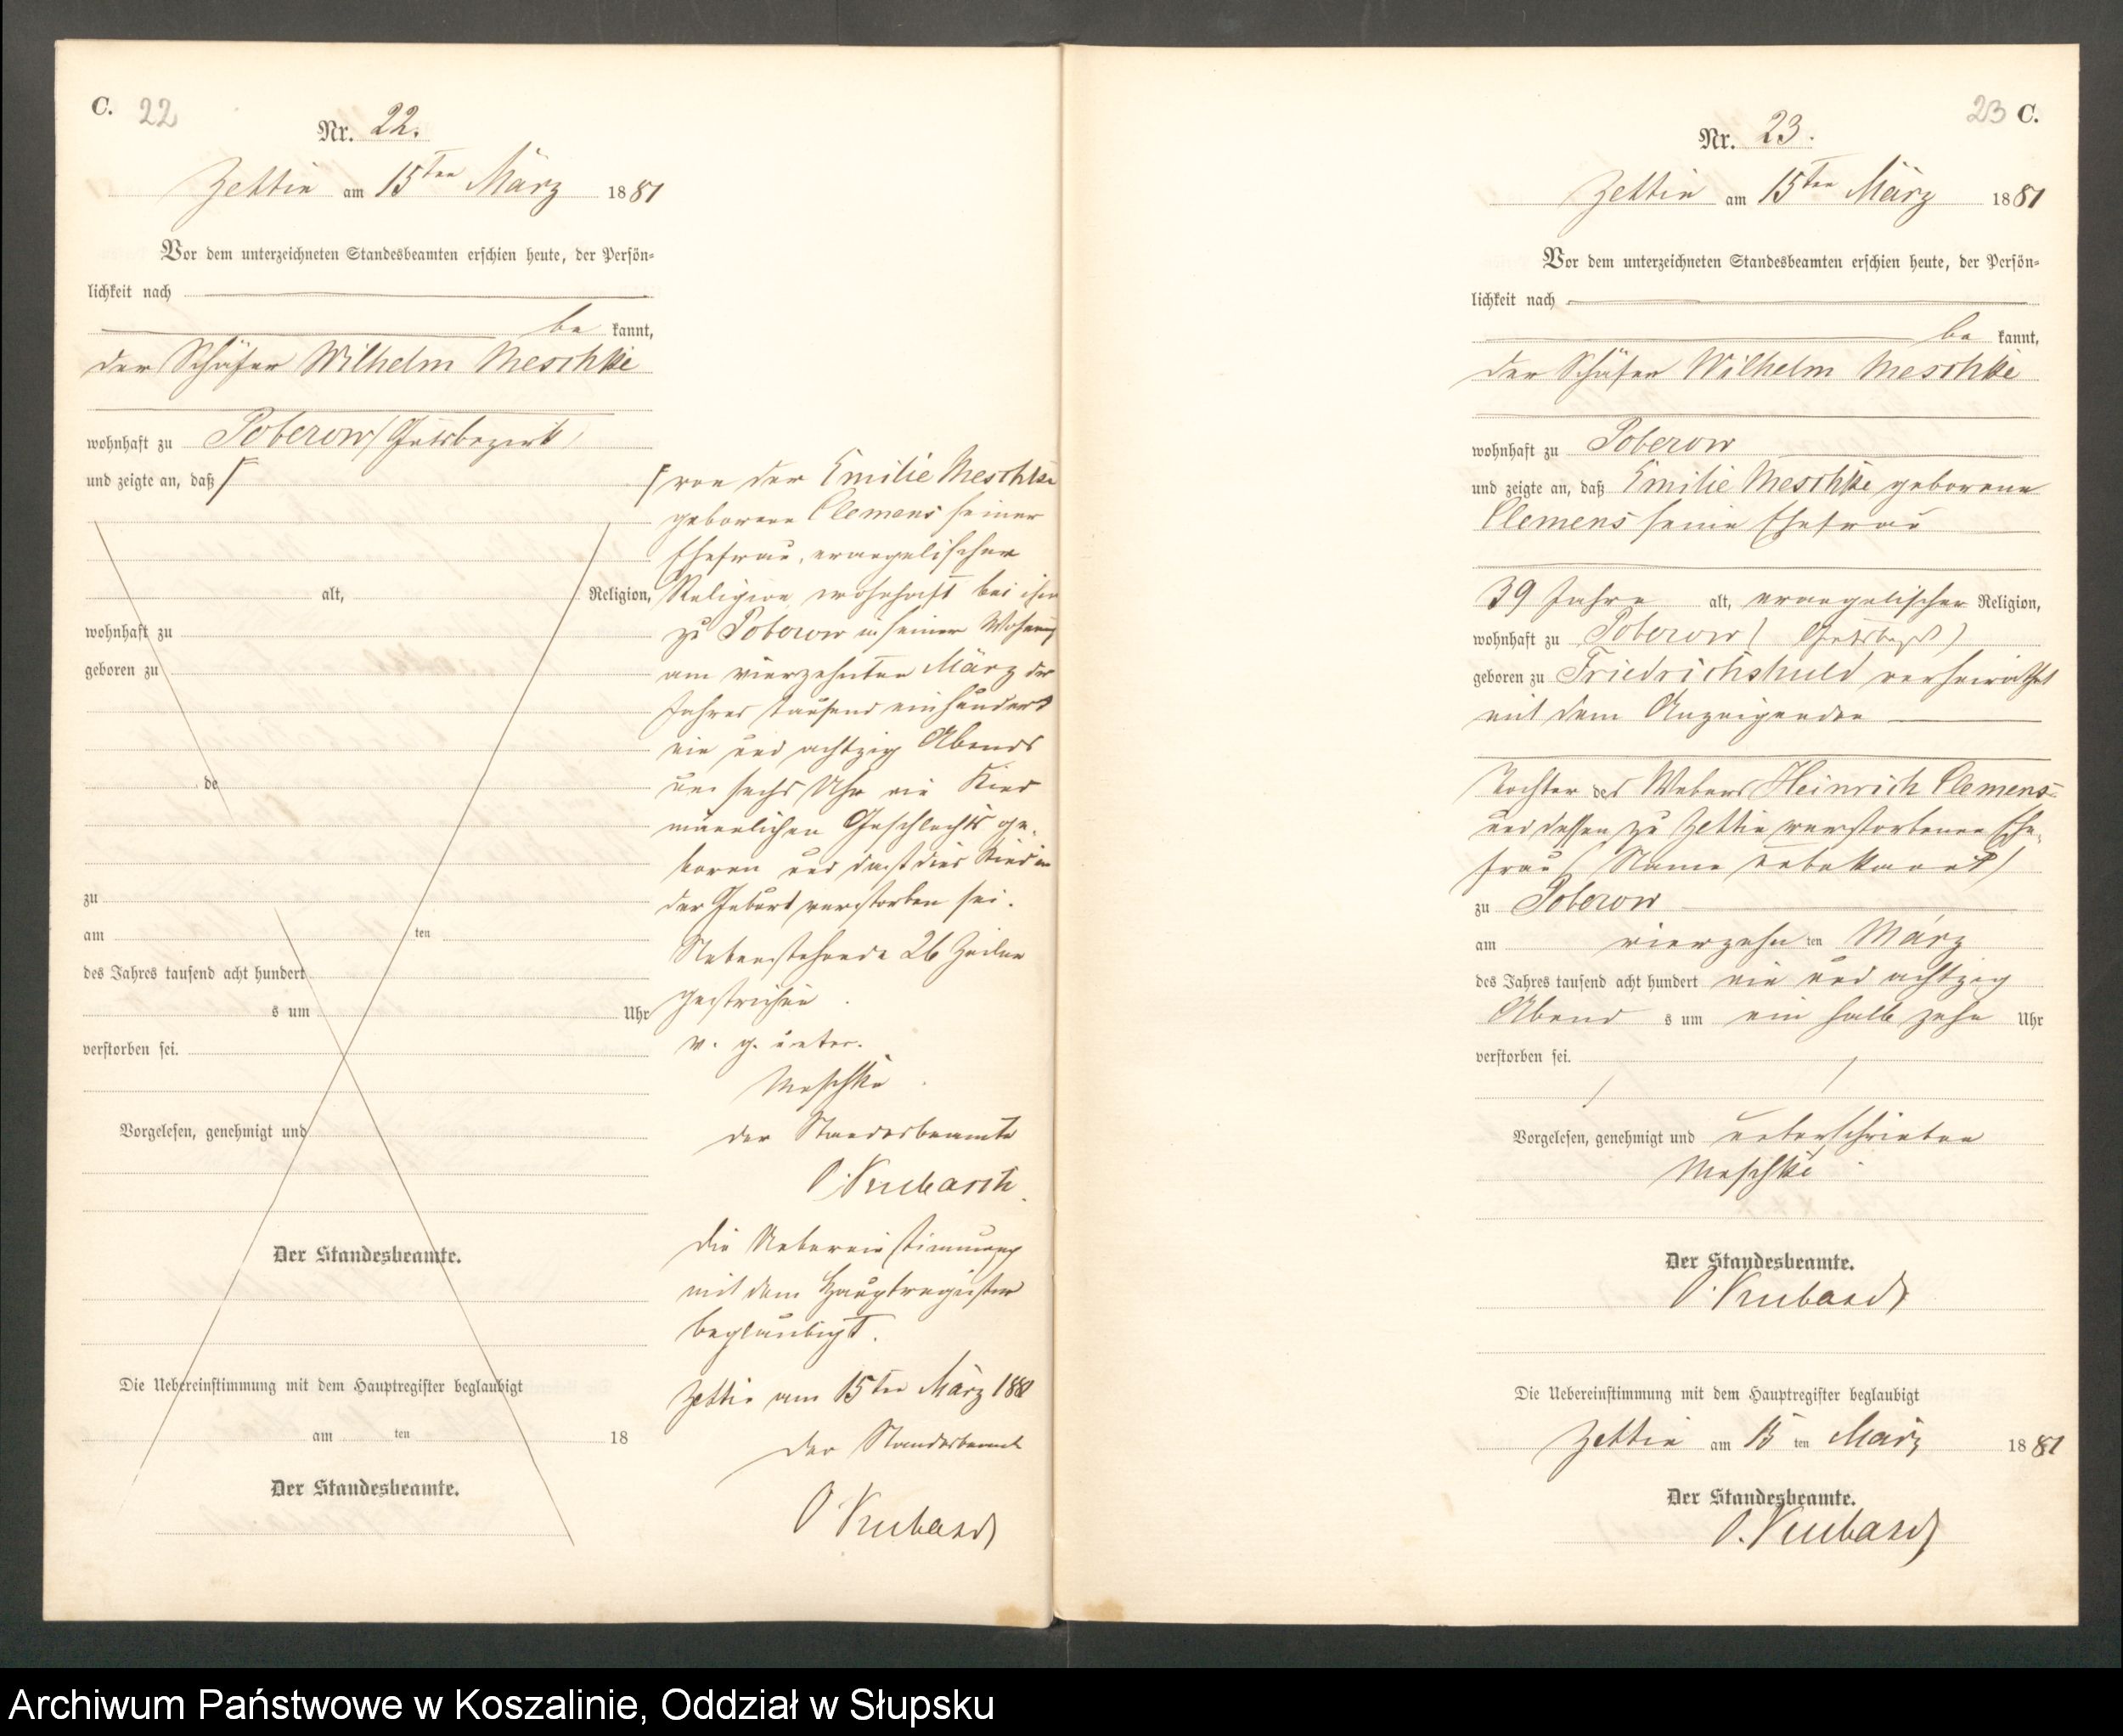 C. 22
Nr. 22.
Zettin am 15ten März 1881
Vor dem unterzeichneten Standesbeamten erschien heute, der Persön-
lichkeit nach
be kannt,
der Schäfer Wilhelm Meschke
wohnhaft zu Poberow (Gutsbezirk)
und zeigte an, daß
alt, Religion,
wohnhaft zu
geboren zu
de
zu
am ten
des Jahres tausend acht hundert
s um Uhr
verstorben sei.
Vorgelesen, genehmigt und
Der Standesbeamte.
Die Uebereinstimmung mit dem Hauptregister beglaubigt
am ten 18
Der Standesbeamte.
von der Emilie Meschke
geborene Clemens seiner
Ehefrau, evangelischer
Religion, wohnhaft bei ihm
zu Poberow in seiner Wohnung
am vierzehnten März des
Jahres tausend einhundert
ein und achtzig Abends
um sechs Uhr ein Kind
männlichen Geschlechts ge-
boren und daß dies Kind in
der Geburt verstorben sei.
Nebenstehende 26 Zeilen
gestrichen.
v. g. unter.
Meschke
Der Standesbeamte
O. Kubasch
Die Uebereinstimmung
mit dem Hauptregister
beglaubigt.
Zettin am 15ten März 1881
Der Standesbeamte
O Kubasch
23 C.
Nr. 23.
Zettin am 15ten März 1881
Vor dem unterzeichneten Standesbeamten erschien heute, der Persön-
lichkeit nach
be kannt,
der Schäfer Wilhelm Meschke
wohnhaft zu Poberow
und zeigte an, daß Emilie Meschke geborene
Clemens seine Ehefrau
39 Jahre alt, evangelischer Religion,
wohnhaft zu Poberow (Gutsbezirk)
geboren zu Friedrichshuld verheirathet
mit dem Anzeigenden
Tochter des Webers Heinrich Clemens
und dessen zu Zettin verstorbenen Ehe-
frau (Name unbekannt)
zu Poberow
am vierzehn ten März
des Jahres tausend acht hundert ein und achtzig
Abend s um ein halb zehn Uhr
verstorben sei.
Vorgelesen, genehmigt und unterschrieben
Meschke
Der Standesbeamte.
O. Kubasch
Die Uebereinstimmung mit dem Hauptregister beglaubigt
Zettin am 15 ten März 1881
Der Standesbeamte.
O. Kubasch
Archiwum Państwowe w Koszalinie, Oddział w Słupsku